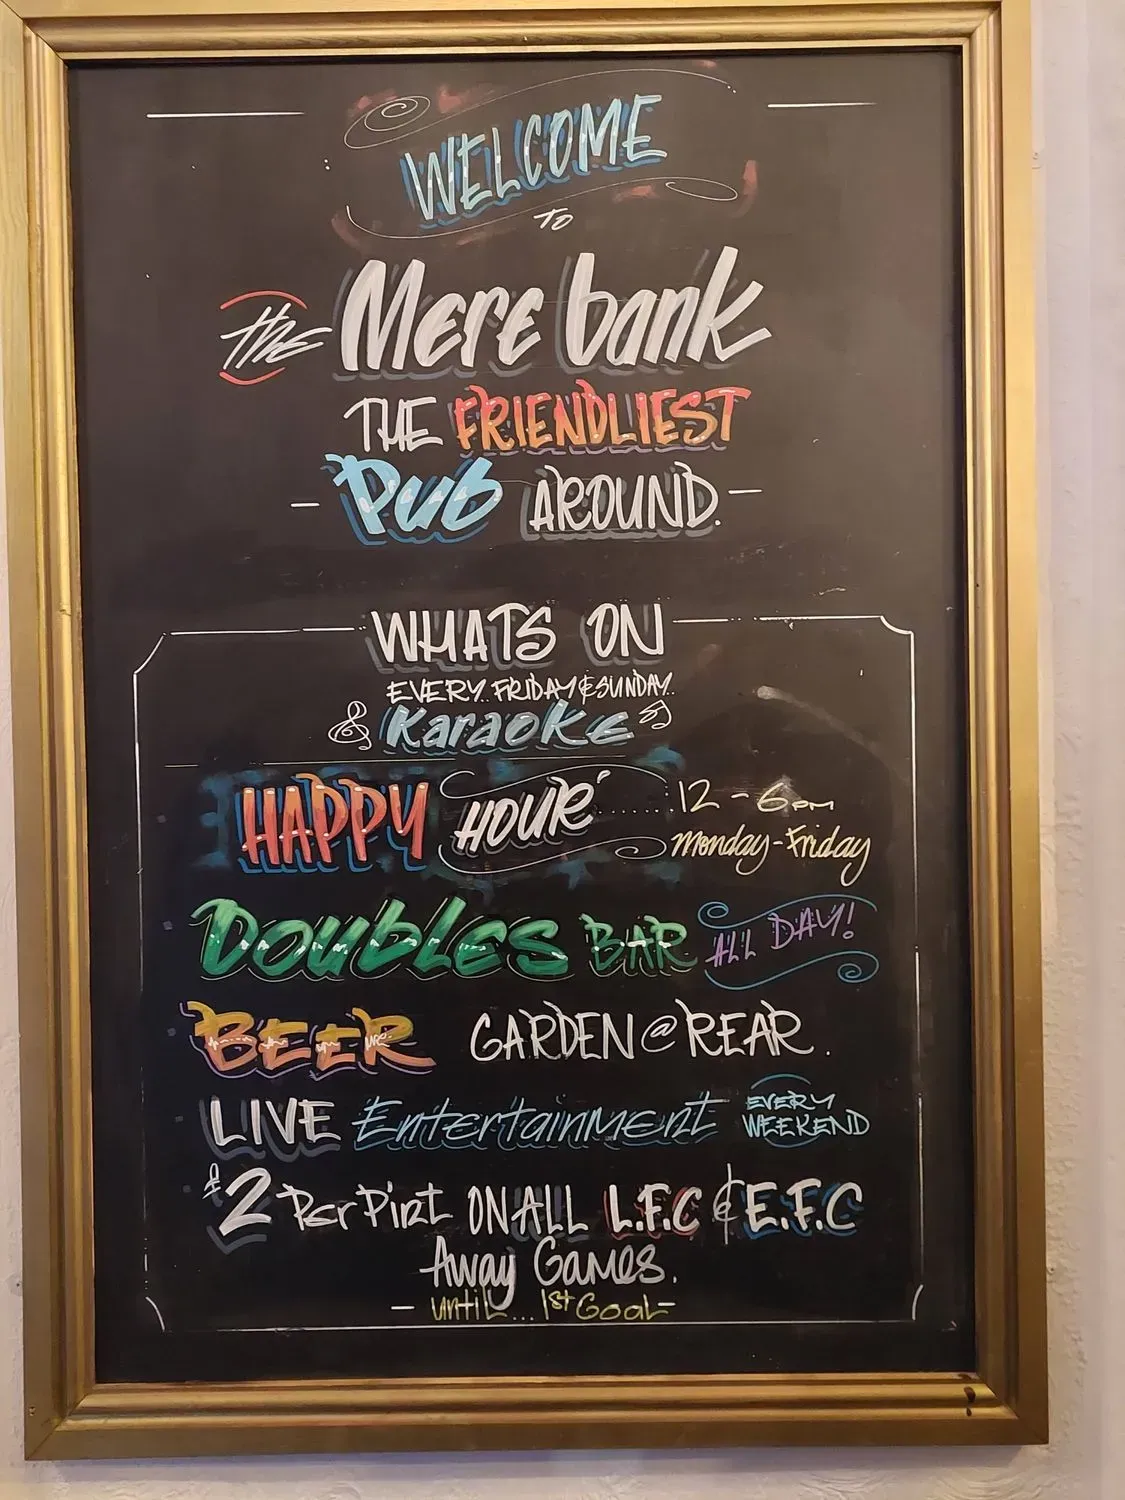 WELCOME
TO
the Mere bank
THE FRIENDLIEST
- Pub AROUND. -
WHATS ON
EVERY FRIDAY & SUNDAY..
Karaoke
HAPPY HOUR' ...... 12 - 6pm
Monday - Friday
DOUBLES BAR ALL DAY!
BEER GARDEN @ REAR.
LIVE Entertainment EVERY
WEEKEND
£2 Per Pint ON ALL L.F.C & E.F.C
Away Games.
- until... 1st Goal -